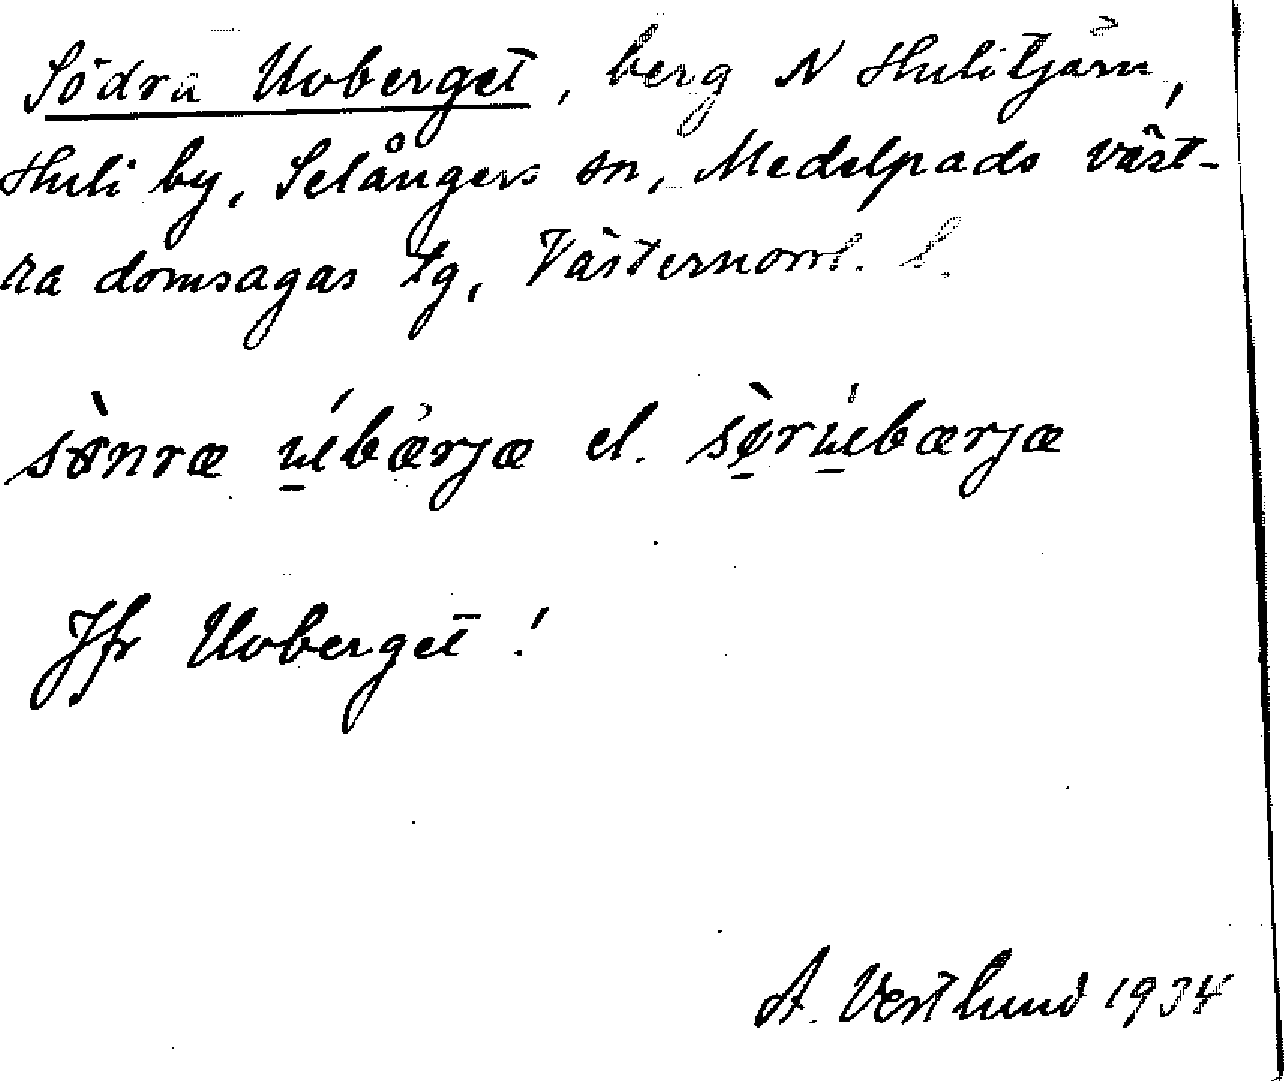 Södra Uvberget, berg N Hulitjärn,
Huli by, Selångers sn, Medelpads väst-
ra domsagas tg, Västernorrl. l.
sònræ u̲´bærjæ el. sø̲̀ru̲bærjæ
Jfr Uvberget!
A. Vestlund 1934